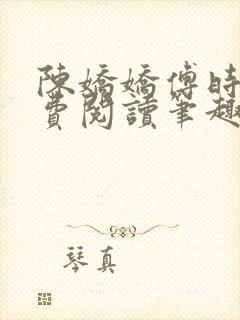 陳嬌嬌傅時
費閱讀筆趣
琴真